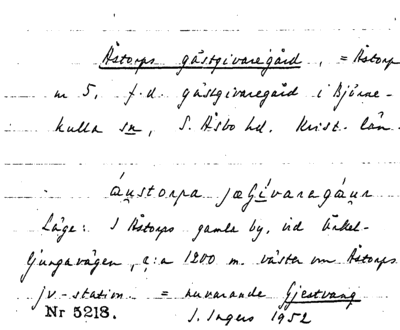 Åstorps gästgivaregård, = Åstorp
nr 5, f.d. gästgivaregård i Björne-
kulla sn, S. Åsbo hd. Krist. län.
áu̯storpa jæGívaregáu̯r
Läge: I Åstorps gamla by, vid Änkel-
ljungavägen, c:a 1200 m. väster om Åstorps
jv-station = nuvarande Gjestvang
Nr 5218. S. Ingers 1952